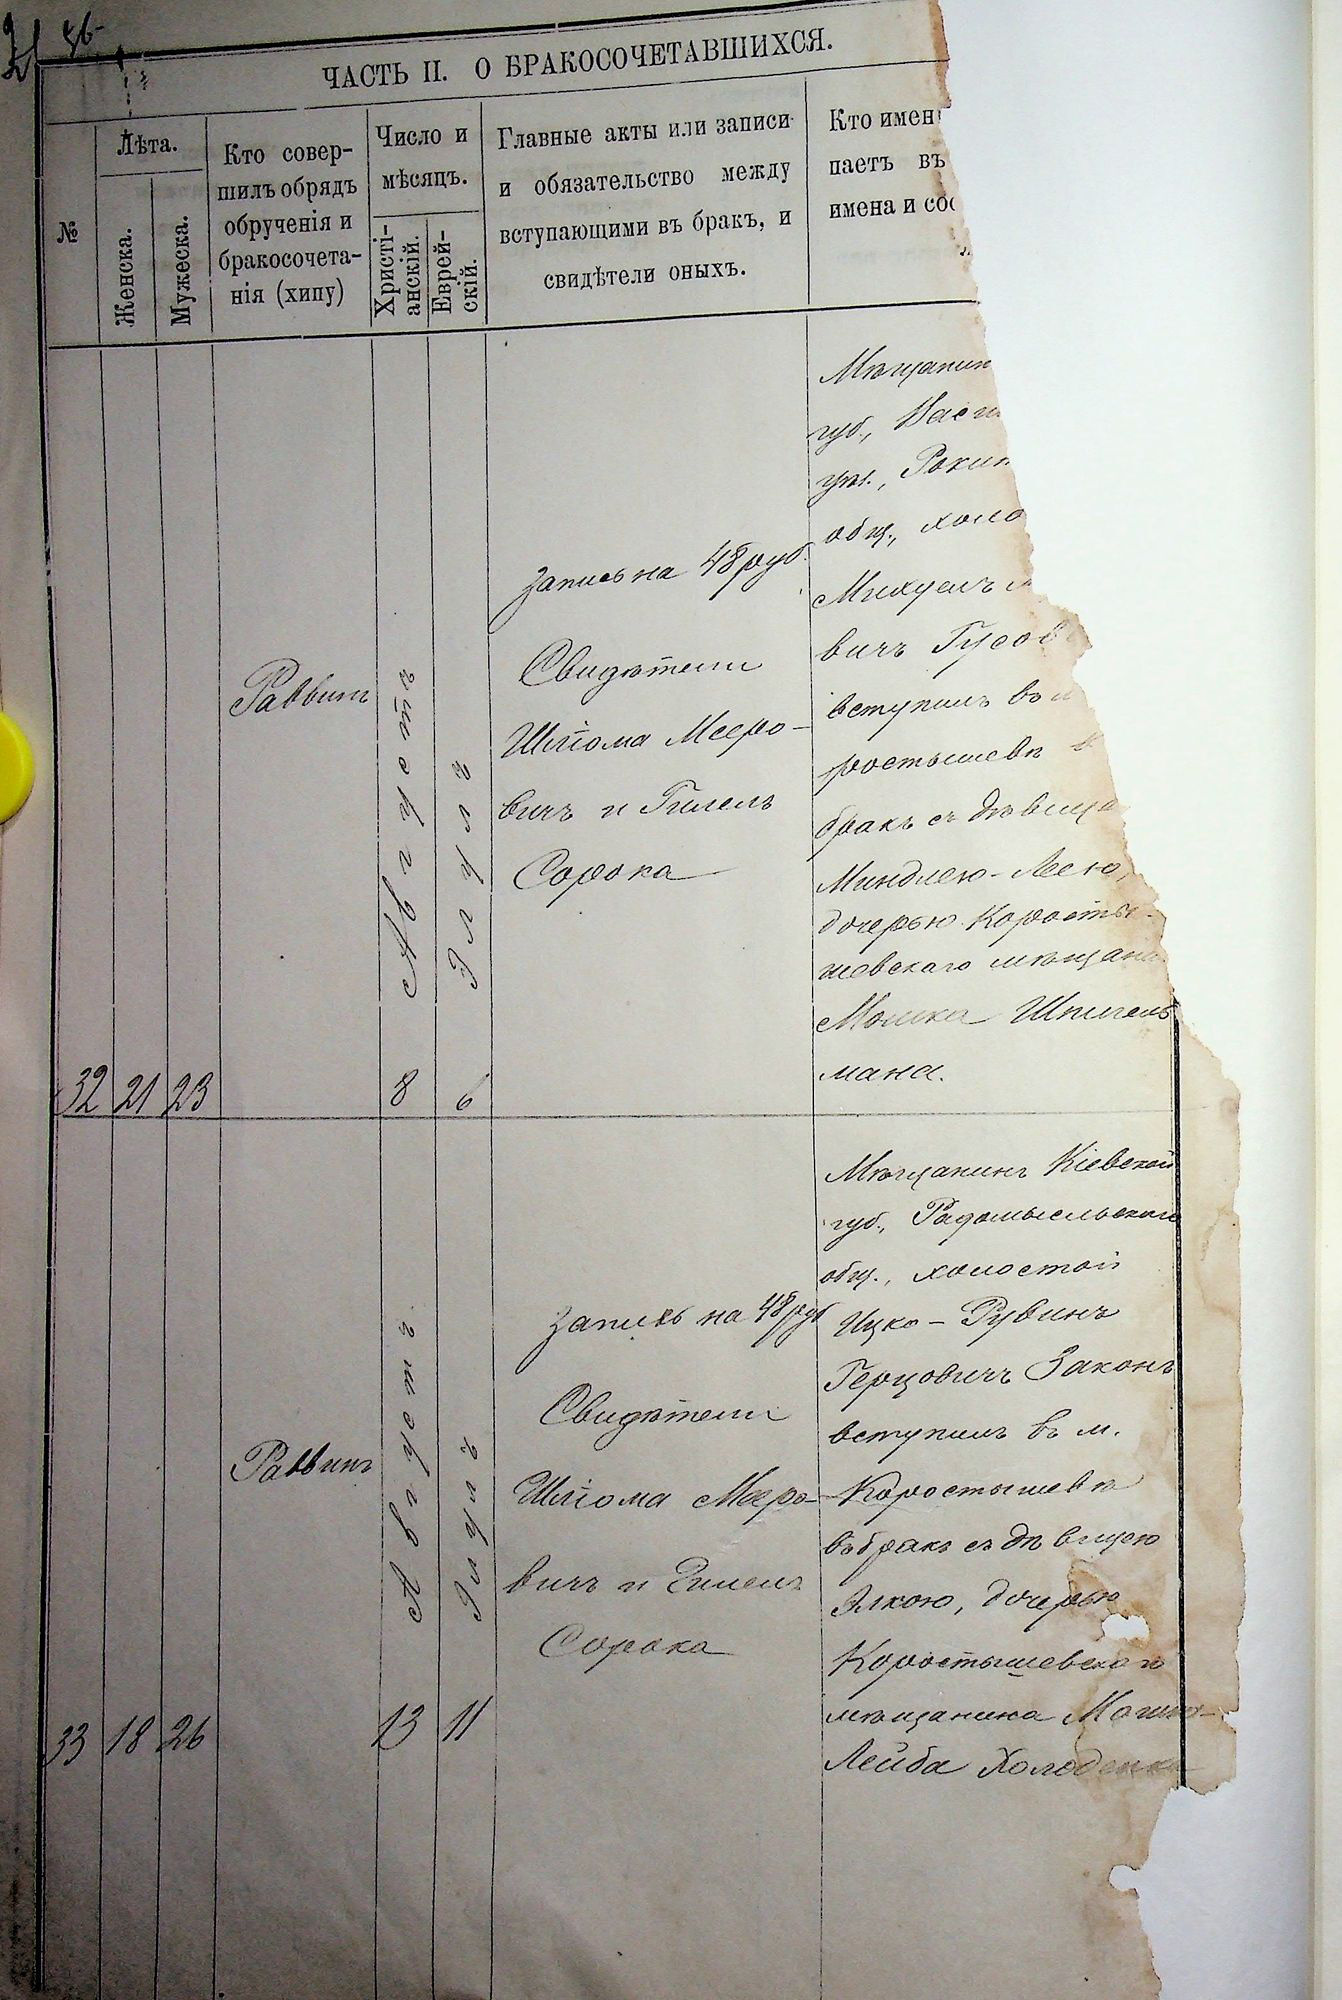 46
ЧАСТЬ II. О БРАКОСОЧЕТАВШИХСЯ.
№
Лѣта.
Женска.
Мужеска.
Кто совер-
шилъ обрядъ
обрученія и
бракосочета-
нія (хипу)
Число и
мѣсяцъ.
Христі-
анскій.
Еврей-
скій.
Главные акты или записи
и обязательство между
вступающими въ бракъ, и
свидѣтели оныхъ.
Кто имен
паетъ въ
имена и сос
32
21
23
Раввинъ
Августъ
8
Элулъ
6
Запись на 48 руб.
Свидѣтели
Шліома Мееро-
вичъ и Гилель
Сорока
Мѣщанин
губ., Васи
уѣз., Рокит
общ., холо
Михуель
вичъ Гусов
вступилъ въ м
ростышевѣ в
бракъ съ дѣвице
Миндлею-Леею,
дочерью Коросты-
шевскаго мѣщана
Мошка Шпигель
мана.
33
18
26
Раввинъ
Августъ
13
Элулъ
11
Запись на 48 руб
Свидѣтели
Шліома Мееро-
вичъ и Гилель
Сорока
Мѣщанинъ Кіевской
губ., Радомысльскаго
общ., холостой
Ицко-Рувинъ
Герцовичъ Законъ
вступилъ въ м.
Коростышевѣ
въ бракъ съ дѣвицею
Элкою, дочерью
Коростышевскаго
мѣщанина Мошко-
Лейба Холоденка